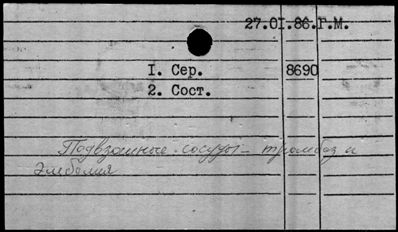 27.01.86.Г.М.
1. Сер. 8690
2. Сост.
Подвздошные сосуды – тромбоз и
эмболия